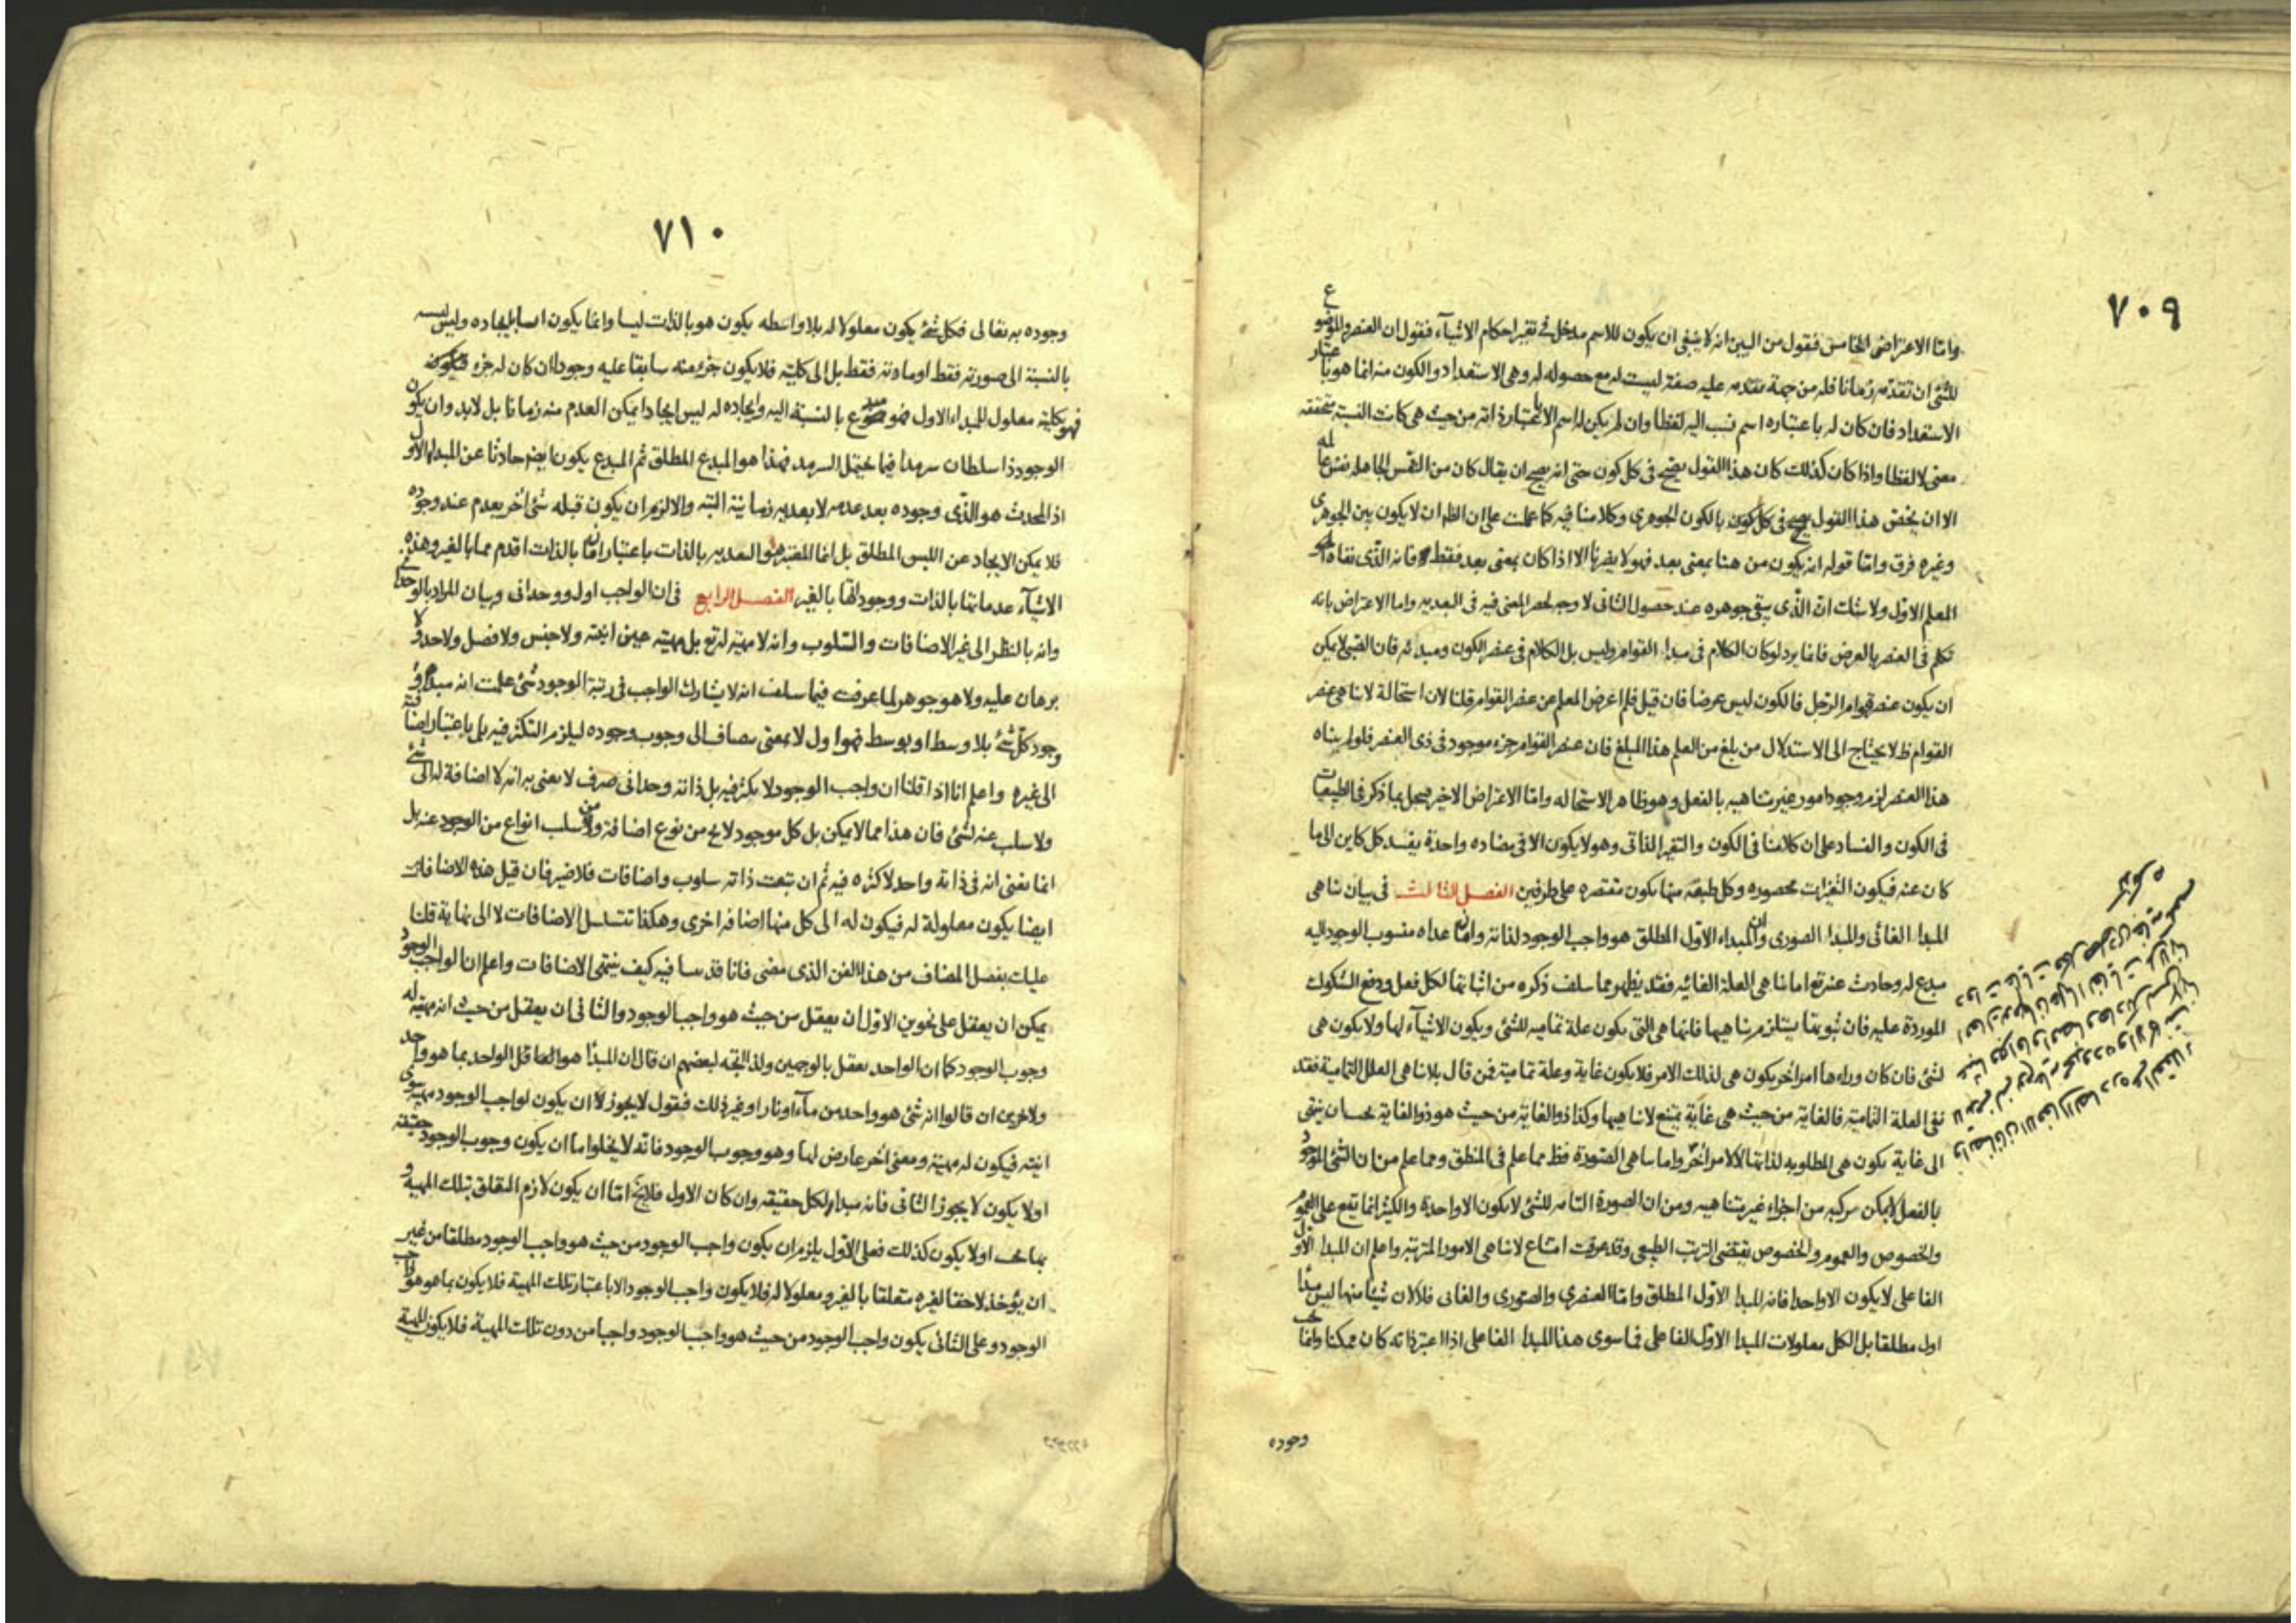 ٧٠٩
واما الاعتراض الخامس فنقول من البين انه لا ينبغى ان يكون للاسم مدخل فى تغير احكام الاشيآء فنقول ان العنصر والموضوع
للشئ ان تقدمه زمانا فله من جهة تقدمه عليه صفة ليست له مع حصوله له وهى الاستعداد والكون منه انما هو باعتبار
الاستعداد فان كان له باعتباره اسم نسب اليه لفظا وان لم يكن له اسم الا باعتبار ذاته من حيث هى كانت النسبة متحققه
معنى لا لفظا واذا كان كذلك كان هذا القول يصح فى كل كون حتى انه يصح ان يقال كان من النفس الجاهله نفس عالمه
الا ان يختص هذا القول بالكون الجوهرى وكلامنا فيه كما علمت على ان الظ ان لا يكون بين الجوهرى
وغيره فرق واما قوله انه يكون من هنا بمعنى بعد فهو لا يضرنا الا اذا كان بمعنى بعد فقط فانه الذى نفاه
المعلم الاول ولا شك ان الذى يبقى جوهره عند حصول الثانى لا وجه لحصر المعنى فيه فى البعديه واما الاعتراض بانه
تكلم فى العنصر بالعرض فانما يرد لو كان الكلام فى مبدا القوام وليس بل الكلام فى عنصر الكون ومبدئه فان الصبى لا يمكن
ان يكون عنصر قوام الرجل فالكون ليس عرضا فان قيل فلم اعرض المعلم عن عنصر القوام قلنا لان استحالة لا تناهى عنصر
القوام ظ لا يحتاج الى الاستدلال من بلغ من العلم هذا المبلغ فان عنصر القوام جزء موجود فى ذى العنصر فلو لم يتناه
هذا العنصر لزم وجود امور غير متناهيه بالفعل وهو ظاهر الاستحاله واما الاعتراض الاخير فيحل بما ذكر فى الطبيعيات
فى الكون والفساد على ان كلامنا فى الكون والتغير الذاتى وهو لا يكون الا فى مضاده واحدة يفسد كل كاين الى ما
كان عنه فيكون التغيرات محصوره وكل طبقه منها يكون مقتصره على طرفين الفصل الثالث فى بيان تناهى
المبدا الغائى والمبدا الصورى وان المبداء الاول المطلق هو واجب الوجود لذاته وان ما عداه منسوب الوجود اليه
مبدع له وحادث عنه تع اما تناهى العلة الغائيه فقد يظهر مما سلف ذكره من اثباتها لكل فعل ودفع الشكوك
الموردة عليه فان ثبوتها يستلزم تناهيها فانها هى التى يكون علة تماميه للشئ ويكون الاشيآء لها ولا يكون هى
لشئ فان كان وراءها امر اخر يكون هى لذلك الامر فلا يكون غاية وعلة تمامية فمن قال بلاتناهى العلل التمامية فقد
نفى العلة التمامية فالغاية من حيث هى غاية يمتنع لا تناهيها وكذا ذو الغاية من حيث هو ذو الغاية بحسان ينتهى
الى غاية يكون هى المطلوبه لذاتها لا لامر اخر واما تناهى الصورة فظ مما علم فى المنطق ومما علم من ان الشئ الموجود
بالفعل لا يمكن تركبه من اجزاء غير متناهيه ومن ان الصورة التامه للشئ لا يكون الا واحدة والكثير انما تقع على العموم
والخصوص والعموم والخصوص يقتضى الترتب الطبيعى وقد عرفت امتناع لا تناهى الامور المترتبه واعلم ان المبدا الاول
الفاعلى لا يكون الا واحدا فانه المبدا الاول المطلق واما العنصرى والصورى والغائى فلا لان شيئا منها ليس مبدأ
اول مطلقا بل الكل معلولات المبدا الاول الفاعلى فما سوى هذا المبدا الفاعلى اذا اعتبر ذاته كان ممكنا وانما يجب
وجوده
٧١٠
وجوده به تعالى فكل شئ يكون معلولا له بلا واسطه يكون هو بالذات ليسا وانما يكون ايسا بايجاده وليس ليسيته
بالنسبة الى صورته فقط او مادته فقط بل الى كليته فلا يكون جزء منه سابقا عليه وجودا ان كان له جزء
فهو بكليته معلول للمبداء الاول فهو مبدع بالنسبة اليه وايجاده له ليس ايجادا يمكن العدم منه زمانا بل لابد وان يكون
الوجود ذا سلطان سرمدا فيما يحتمل السرمد فهذا هو المبدع المطلق ثم المبدع يكون ايضا حادثا عن المبدا الاول
اذ المحدث هو الذى وجوده بعد عدمه لا بعديه زمانية البته والا لزم ان يكون قبله شئ اخر يعدم عند وجوده
فلا يمكن الايجاد عن الليس المطلق بل انما المعتبر هو البعديه بالذات باعتبار ان ما بالذات اقدم مما بالغير وهذه
الاشيآء عدماتها بالذات ووجوداتها بالغير الفصل الرابع فى ان الواجب اول ووحدانى وبيان المراد بالوحدانى
وانه بالنظر الى غير الاضافات والسلوب وانه لا مهية له تع بل مهيته عين انيته ولا جنس ولا فصل ولا حد ولا
برهان عليه ولا هو جوهر لما عرفت فيما سلف انه لا يشارك الواجب فى رتبة الوجود شئ علمت انه مبدأ
وجود كل شئ بلا وسط او بوسط فهو اول لا بمعنى مضاف الى وجوب وجوده ليلزم التكثر فيه بل باعتبار اضافته
الى غيره واعلم انا اذا قلنا ان واجب الوجود لا يكثر فيه بل ذاته وحدانى صرف لا نعنى به انه لا اضافة له الى شئ
ولا سلب عنه لشئ فان هذا مما لا يمكن بل كل موجود لا يخ من نوع اضافة ومن سلب انواع من الوجود عنه بل
انما نعنى انه فى ذاته واحد لا كثره فيه ثم ان تبعت ذاته سلوب واضافات فلا ضير فان قيل هذه الاضافات
ايضا يكون معلولة له فيكون له الى كل منها اضافه اخرى وهكذا تتسلسل الاضافات لا الى نهاية قلنا
عليك بفصل المضاف من هذا الفن الذى مضى فانا قد بينا فيه كيف ينتهى الاضافات واعلم ان الواجب الوجود
يمكن ان يعقل على نحوين الاول ان يعقل من حيث هو واجب الوجود والثانى ان يعقل من حيث انه مهيته له
وجوب الوجود كما ان الواحد يعقل بالوجهين ولذا اتجه لبعضهم ان قال ان المبدأ هو العاقل الواحد بما هو واحد
ولاخرين ان قالوا انه شئ هو واحد من مآء او نار او غير ذلك فنقول لا يجوز ان يكون لواجب الوجود مهية سوى
انيته فيكون له مهية ومعنى اخر عارض لها وهو وجوب الوجود فانه لا يخلوا ما ان يكون وجوب الوجود حقيقه
او لا يكون لا يجوز الثانى فانه مبدا لكل حقيقه وان كان الاول فلا يخ اما ان يكون لازم التعلق بتلك المهية و
او لا يكون كذلك فعلى الاول يلزم ان يكون واجب الوجود من حيث هو واجب الوجود مطلقا من غير
ان يؤخذ لاحقا لغيره متعلقا بالغير ومعلولا له فلا يكون واجب الوجود الا باعتبار تلك المهية فلا يكون بما هو واجب
الوجود وعلى الثانى يكون واجب الوجود من حيث هو واجب الوجود واجبا من دون تلك المهية فلا يكون المهية